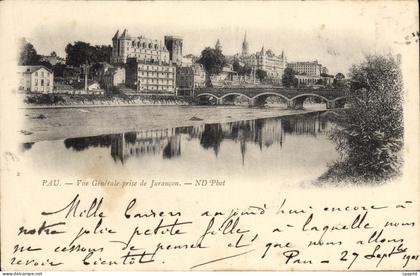 PAU. — Vue Générale prise de Jurançon. — ND Phot
Mille Baisers aujourd'hui encore à
notre jolie petite fille, à laquelle nous
ne cessons de penser et que nous allons
revoir bientôt. Pau - 29 Sept